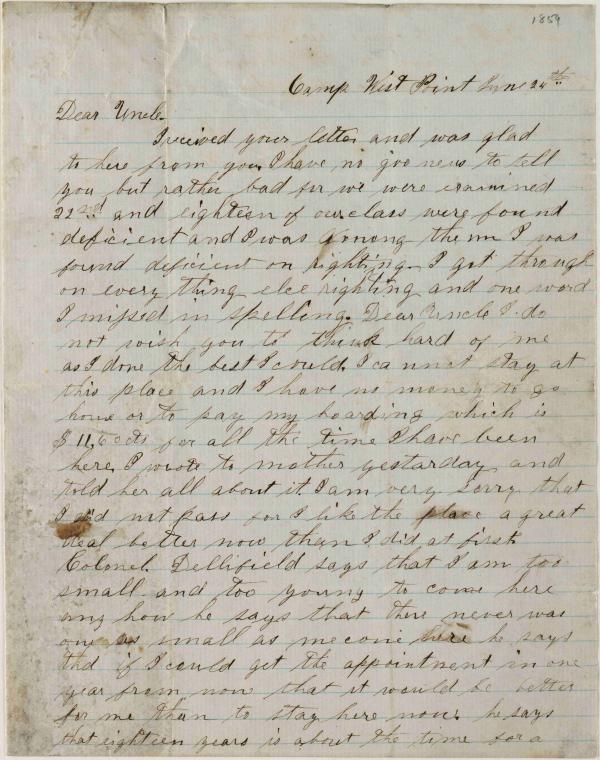 1859
Camp West Point June 24th
Dear Uncle
I recived your letter and was glad
to here from you, I have no goo news to tell
you but rather bad for we were examined
22nd and eighteen of our class were found
deficient and I was among them I was
found deficient on righting. I got through
on every thing else righting and one word
I missed in spelling. Dear Uncle I do
not wish you to think hard of me
as I done the best I could, I cannot stay at
this place and I have no money to go
home or to pay my boarding which is
for all the time I have been
here, I wrote to mother yestarday and
told her all about it. I am very sorry that
I did not pass for I like the place a great
deal better now than I did at first.
Colonel Dellifield says that I am too
small and too young to come here
any how he says that there never was
one as small as me come here he says
thd if I could get the appointment in one
year from now that it would be better
for me than to stay here now. he says
that eighteen years is about the time for a